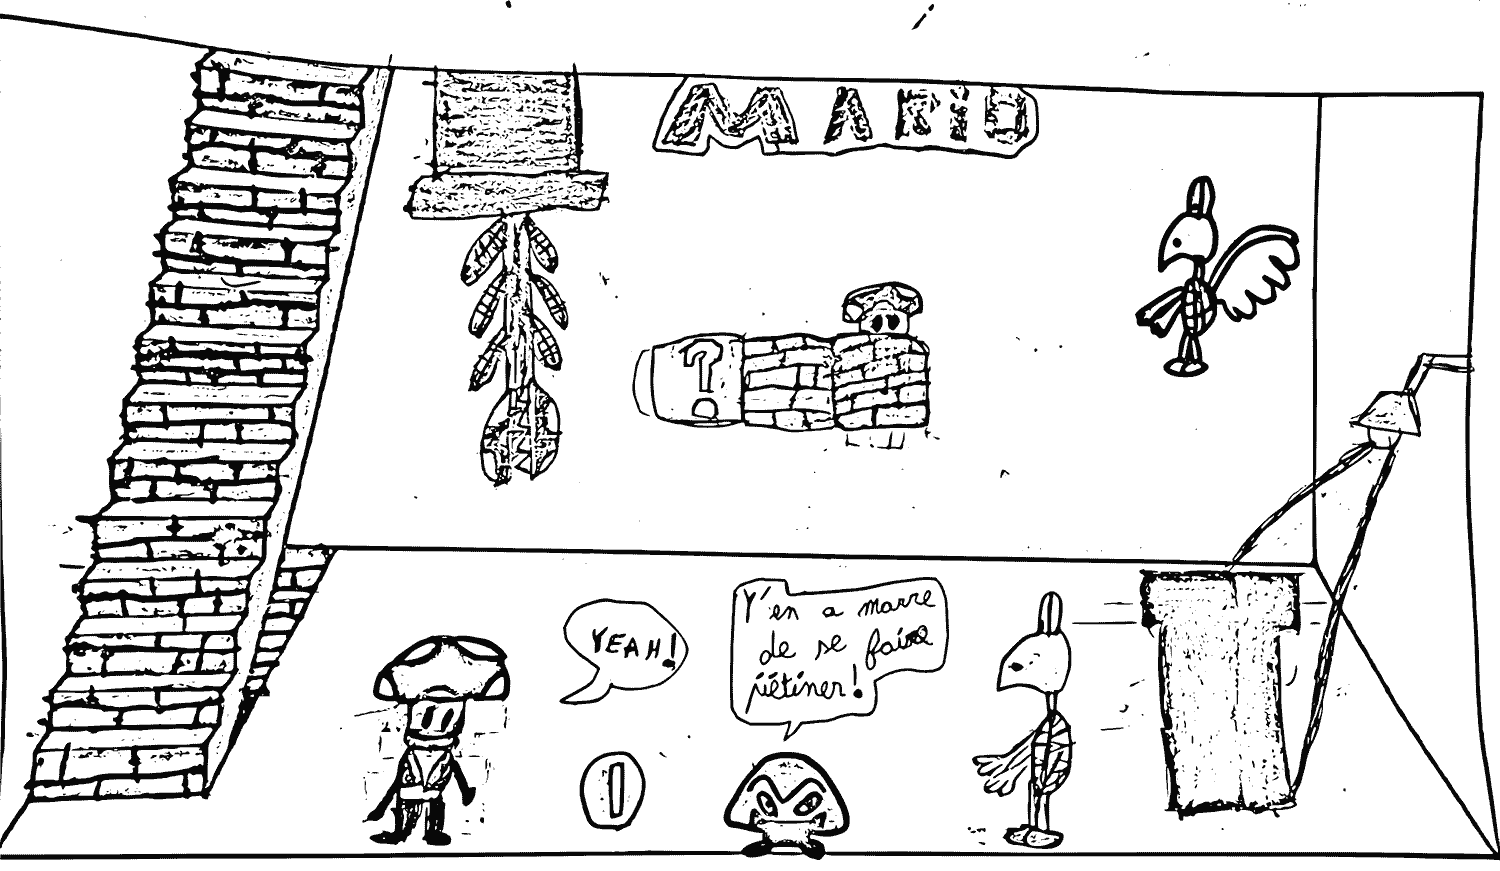 MARIO
?
YEAH!
Y'en a marre
de se faire
piétiner!